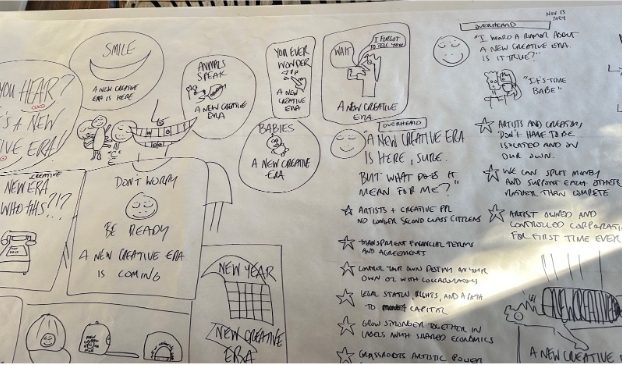 YOU HEAR?
IT'S A NEW
CREATIVE ERA!
SMILE
A NEW CREATIVE
ERA IS HERE
ANIMALS
SPEAK
A NEW CREATIVE
ERA
YOU EVER
WONDER
A NEW
CREATIVE
ERA
WAIT
I FORGOT
TO TELL YOU
A NEW CREATIVE
ERA
BABIES
A NEW CREATIVE
ERA
CREATIVE
NEW ERA
WHO THIS?!?
DON'T WORRY
BE READY
A NEW CREATIVE ERA
IS COMING
NEW YEAR
NEW CREATIVE
ERA
OVERHEARD
"A NEW CREATIVE ERA
IS HERE, SURE.
BUT WHAT DOES IT
MEAN FOR ME?"
ARTISTS + CREATIVE PPL
NO LONGER SECOND CLASS CITIZENS
TRANSPARENT FINANCIAL TERMS
AND AGREEMENT
CONTROL YOUR OWN DESTINY ON YOUR
OWN OR WITH COLLABORATORS
LEGAL STATUS, RIGHTS, AND A PATH
TO CAPITAL
GROW STRONGER TOGETHER IN
LABELS WITH SHARED ECONOMICS
GRASSROOTS ARTISTIC POWER
NOV 13
OVERHEARD
"I HEARD A RUMOR ABOUT
A NEW CREATIVE ERA.
IS IT TRUE?"
"IT'S TIME
BABE"
ARTISTS AND CREATORS
DON'T HAVE TO BE
ISOLATED AND ON
OUR OWN.
WE CAN SPLIT MONEY
AND SUPPORT EACH OTHER
RATHER THAN COMPETE
ARTIST OWNED AND
CONTROLLED CORPORATION
FOR FIRST TIME EVER
NEW CREATIVE
A NEW CREATIVE